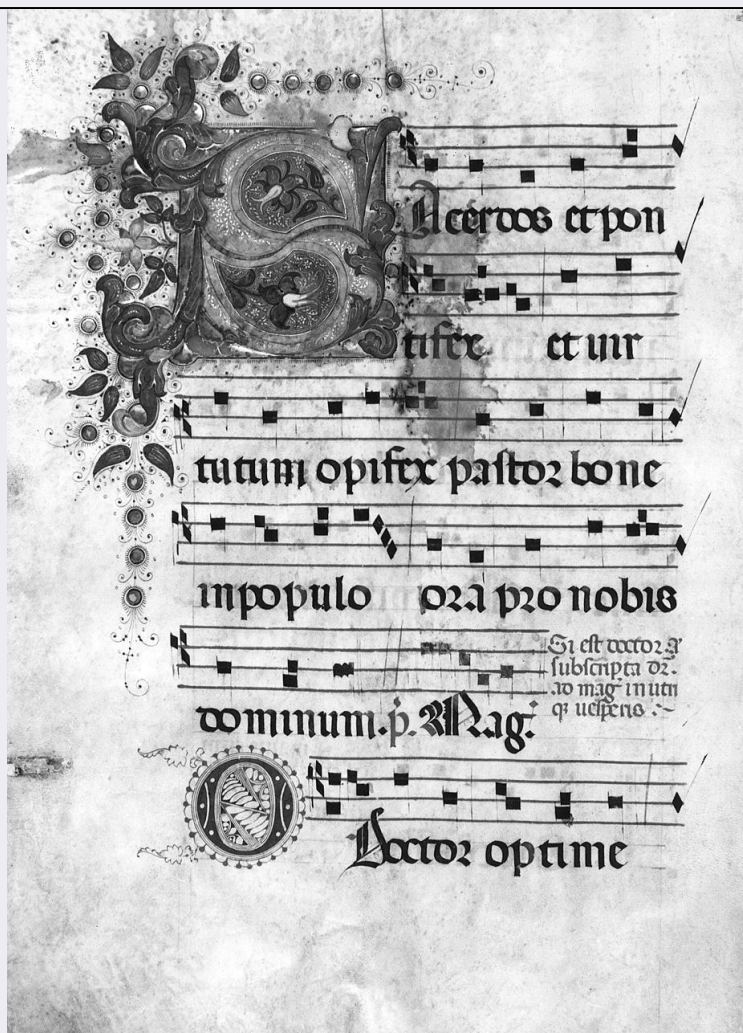 SAcerdos et pon
tifex et uir
tutum opifex pastor bone
in populo ora pro nobis
dominum. p̄. Mag.
Si est doctor a͞
subscripta dr̄.
ad maḡ in utri
q; uesperis :~
O Doctor optime